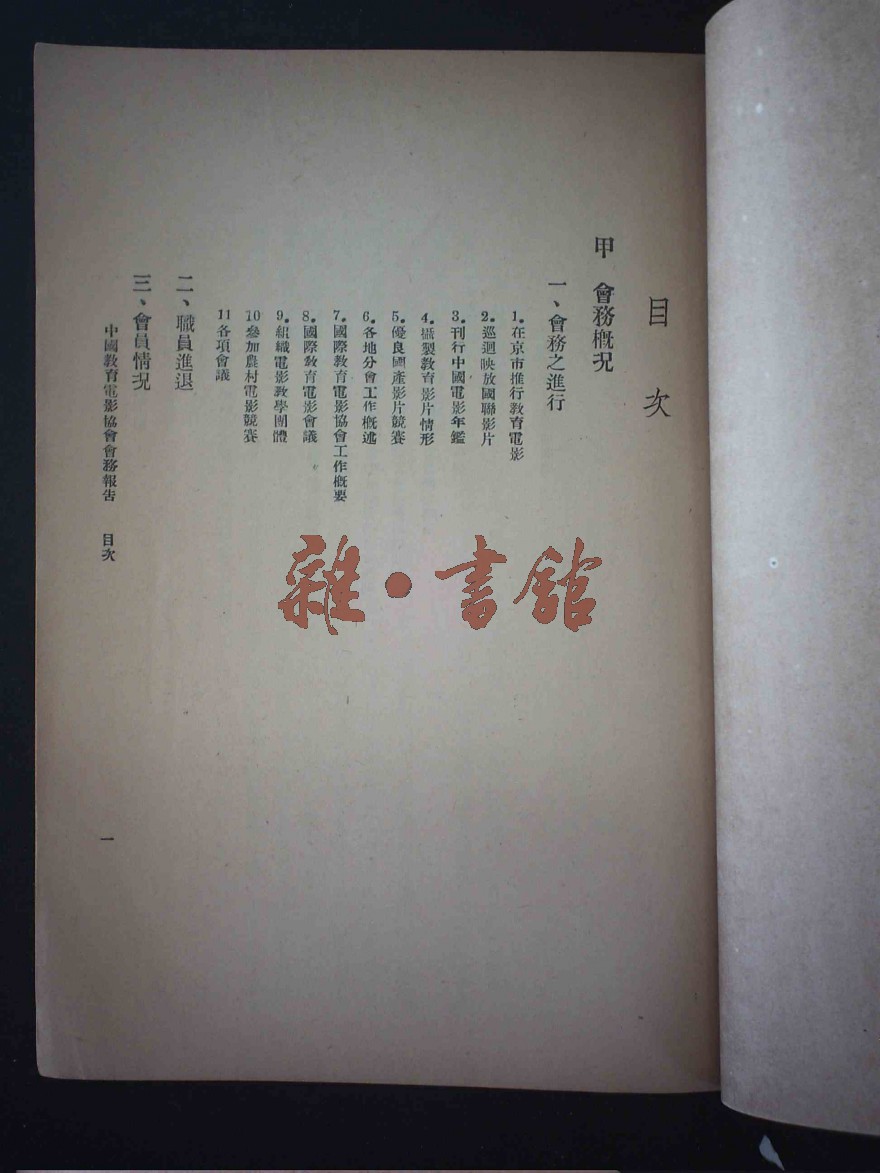 目次
甲 會務概況
一、會務之進行
1.在京市推行教育電影
2.巡迴映放國聯影片
3.刊行中國電影年鑑
4.攝製教育影片情形
5.優良國產影片競賽
6.各地分會工作概述
7.國際教育電影協會工作概要
8.國際教育電影會議
9.組織電影教學團體
10參加農村電影競賽
11各項會議
二、職員進退
三、會員情況
中國教育電影協會會務報告 目次
一
雜·書館